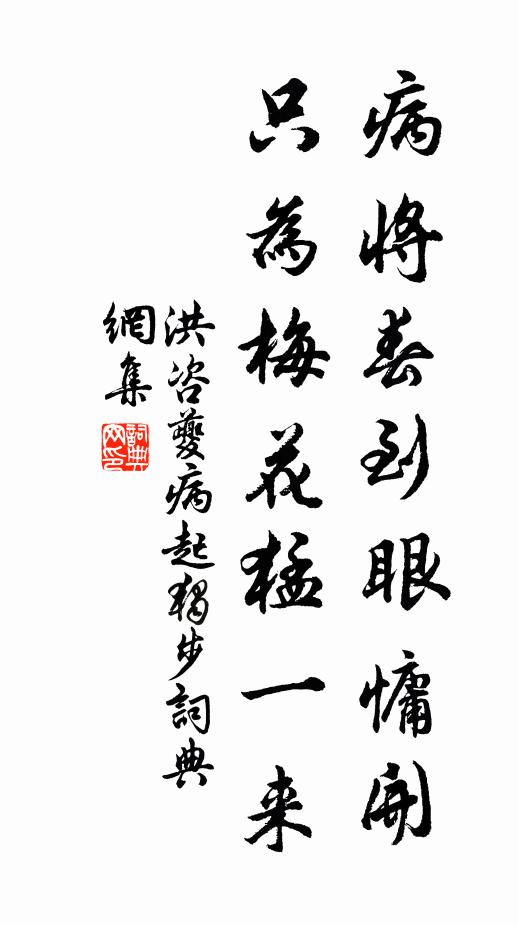 病將春到眼慵開
只為梅花猛一来
洪咨夔病起獨步詞典
網集
詞典網印